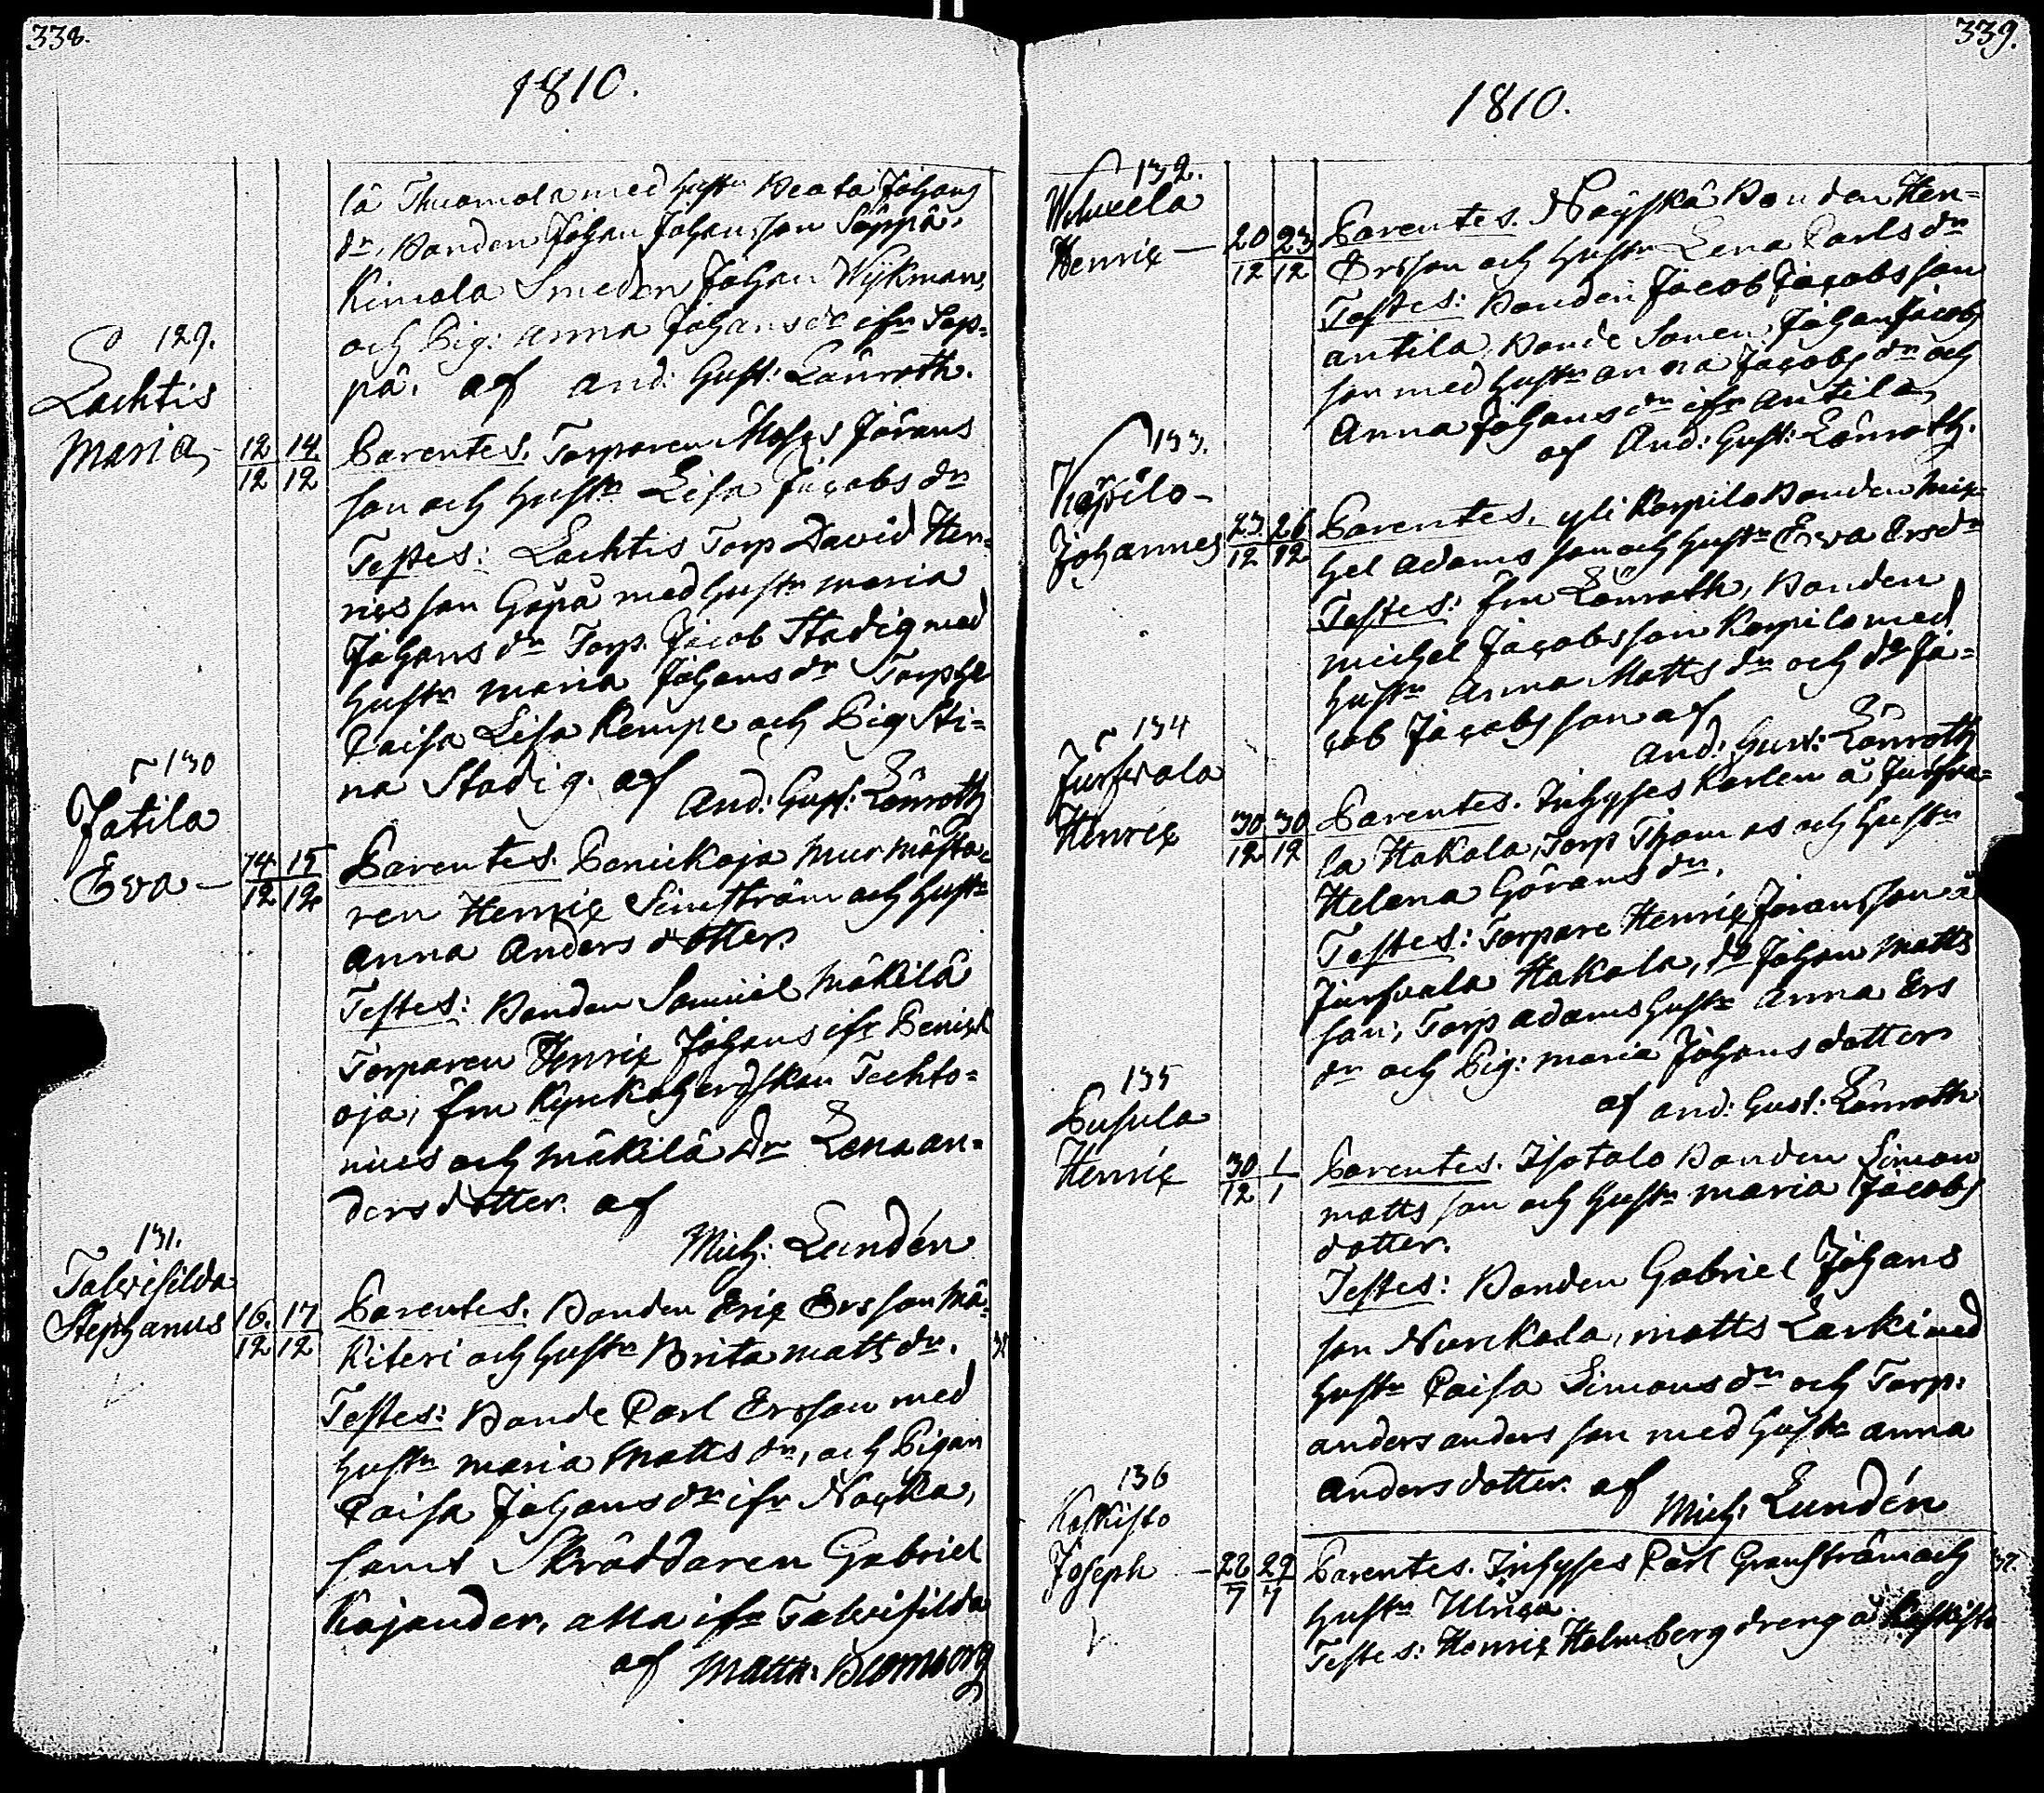 338.
1810.
lä Thuomola med hustr Beata Johans
dr, Bonden Johan Johansson Säppä,
Kimola Smeden Johan Wijkman,
och Pig: Anna Johans dr ifr Sep-
pä. af And: Gust: Lönroth.
129.
Lachtis
Maria,
12 14
12 12
Parentes. Torparen Moses Jörans
son och hustr Lisa Jacobs dr
Testes: Lachtis Torp David Hen-
ricsson Göpä med hustr Maria
Johans dr Torp. Jacob Stadig med
hustr Maria Johans dr Torp
Caisa Lisa Kempe och Pig Sti-
na Stadig. af
And: Gust: Lönroth
130
Jatila
Eva
14 15
12 12
Parentes. Penickoja Murmästa-
ren Henric Limström och hustr
Anna Anders dotter.
Testes: Bonden Samuel Mäkilä
Torparen Henric Johans ifr Penick
oja, fru Kyrkoherdskan Techto-
nius och Mäkilä Dr Lena An-
dersdotter. af
Mich: Lundén
131.
Talvisilda
Stephanus
16. 17
12 12
Parentes. Bonden Eric Ersson Mä-
kiteri och hustr Brita Matts dr.
Testes: Bonde Carl Ersson med
hustr Maria Matts dr, och Pigan
Caisa Johans dr ifr Noycka,
samt Skräddaren Gabriel
Kajander, alla ifr Talvisilda
af Matth: Blomborg
339.
1810.
132.
Henric
20 23
12 12
Parentes. Noyskä Bonden Hen-
Ersson och hustr Lena Carls dr
Testes: Bonden Jacob Jacobsson
Antila, Bonde Sonen, Johan Jacobs
son med hustr Anna Jacobs dr och
Anna Johans dr ifr Antila,
af And: Gust: Lönroth.
133.
Johannes
23 26
12 12
Parentes. yli Karpilo Bonden Mic-
hel Adams son och hustr Eva Ers dr
Testes: fru Lönroth, Bonden
Michel Jacobsson Karpilo med
hustr Anna Matts dr och dr Ja-
cob Jacobsson af
And: Gust: Lönroth
134
Jurfvala
Henric
30 30
12 12
Parentes. Inhyses Karlen ä Jurfva-
la Hakala, Torp Thomas och hustr
Helena Görans dr.
Testes: Torpare Henric Joransson ä
Jurfvala Hakala, do Johan Matts
son, Torp Adams hustr Anna Ers
dr och Pig: Maria Johans dotter
af And: Gust: Lönroth
135
Pusula
Henric
30 1
12 1
Parentes. Isotalo Bonden Simon
Matts son och hustr Maria Jacobs
dotter.
Testes: Bonden Gabriel Johans
son Nurckala, Matts Larki med
hustr Caisa Simons dr och Torp:
Anders Anders son med hustr Anna
Andersdotter. af
Mich: Lundén
136
Koskisto
Joseph
22 29
7 7
Parentes. Inhyses Carl Granström och
hustr Ulrica.
Testes: Henric Holmberg dreng å Koskisto